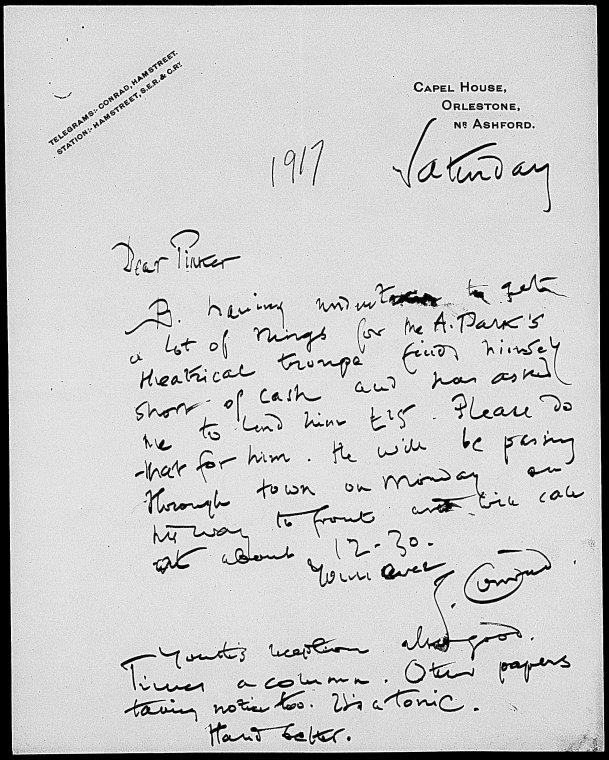 TELEGRAMS:- CONRAD, HAMSTREET.
STATION:- HAMSTREET, S.E.R. & C.RY.
CAPEL HOUSE,
ORLESTONE,
NR ASHFORD.
1917
Saturday
Dear Pinker
B. having to get
a lot of things for the A. Park's
theatrical troupe finds himself
short of cash and has asked
me to lend him £15. Please do
that for him. He will be passing
through town on Monday on
his way to front and will call
at about 12-30.
Yours ever
J. Conrad.
Youth's reception also good.
Times a column. Other papers
taking notice too. It's a tonic.
Hand better.